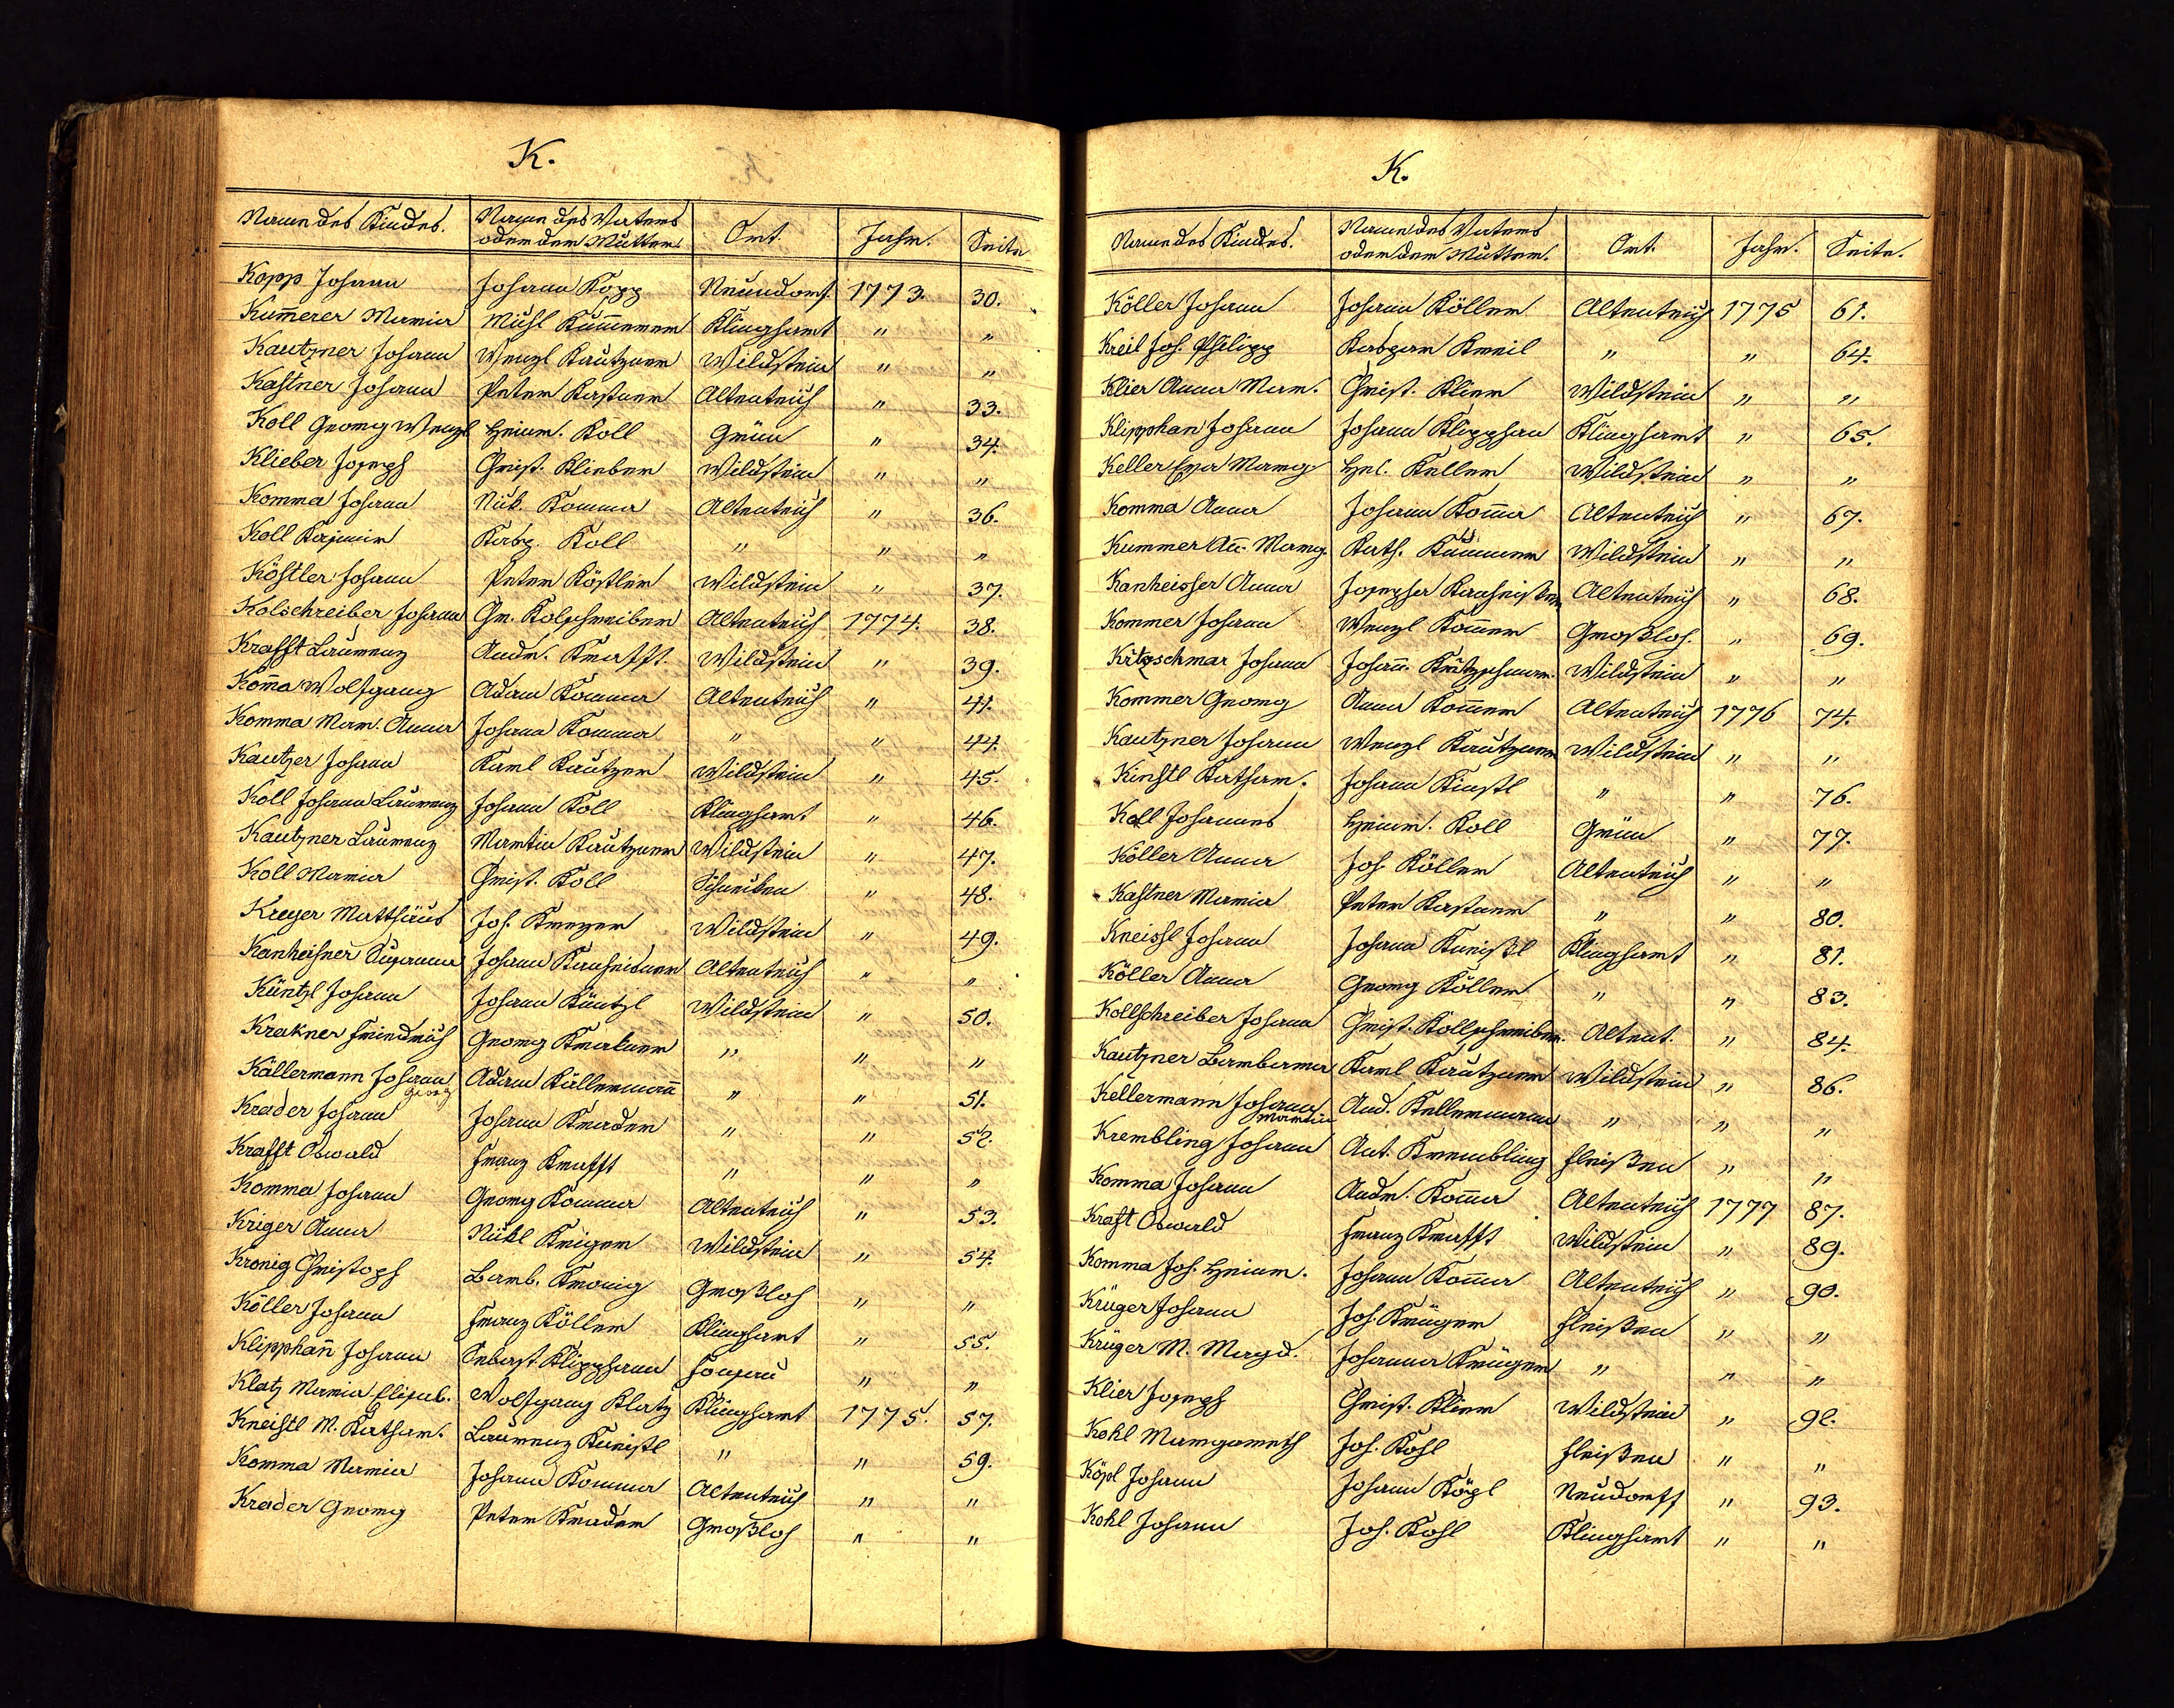 K.
Name des Kindes. Name des Vaters oder der Mutter. Ort. Jahr. Seite
Kopp Johann Johann Kopp Neuendorf. 1773. 30.
Kum̄erer Maria Mich̄l Kum̄erer Klinghart " "
Kautzner Johann Wenzl Kautzner Wildstein " "
Kastner Johann Peter Kastner Altenteich " 33.
Koll Georg Wenzl Heinr. Koll Grün " 34.
Klieber Joseph Christ. Klieber Wildstein " "
Komma Johann Nik. Komma Altenteich " 36.
Koll Kasimir Kasp. Koll " " "
Köstler Johann Peter Köstler Wildstein " 37.
Kolschreiber Johann Gr. Kolschreiber Altenteich 1774. 38.
Krafft Laurenz Andr. Krafft Wildstein " 39.
Kom̄a Wolfgang Adam Komma Altenteich " 41.
Komma Mar. Anna Johann Komma " " 44.
Kautzer Johann Karl Kautzer Wildstein " 45.
Koll Johann Laurenz Johann Koll Klinghart " 46.
Kautzner Laurenz Martin Kautzner Wildstein " 47.
Koll Maria Christ. Koll Schneiben " 48.
Kreyer Matthäus Joh. Kreyer Wildstein " 49.
Kanheisner Susanna Johann Kanheisner Altenteich " "
Küntzl Johann Johann Küntzl Wildstein " 50.
Krakner Friedrich Georg Krakner " " "
Källermann Johann Georg Adam Källerman̄ " " 51.
Krader Johann Johann Krader " " 52.
Krafft Oswald Franz Krafft " " "
Komma Johann Georg Komma Altenteich " 53.
Kriger Anna Nikl Kriger Wildstein " 54.
Kronig Christoph Barb. Kronig Großloh " "
Köller Johann Franz Köller Klinghart " 55.
Klipphan̄ Johann Sebast. Klipphann Fonsau " "
Klatz Maria Elisab. Wolfgang Klatz Klinghart 1775. 57.
Kneistl M. Kathar. Laurenz Kneistl " " 59.
Komma Maria Johann Komma Altenteich " "
Krader Georg Peter Krader Großloh " "
K.
Name des Kindes. Name des Vaters oder der Mutter. Ort. Jahr. Seite.
Köller Johann Johann Köller Altenteich 1775 61.
Kreil Joh. Philipp Kaspar Kreil " " 64.
Klier Anna Mar. Christ. Klier Wildstein " "
Klipphan Johann Johann Klipphan Klinghart " 65.
Keller Eva Marg. Hel. Keller Wildstein " "
Komma Anna Johann Kom̄a Altenteich " 67.
Kummer An̄. Marg. Kath. Kummer Wildstein " "
Kanheisser Anna Josepha Kanheisser Altenteich " 68.
Kommer Johann Wenzl Kom̄er Großloh. " 69.
Kritzschmar Johann Johann Kritzschmar. Wildstein " "
Kommer Georg Anna Kom̄er Altenteich 1776 74.
Kautzner Johann Wenzl Kautzner Wildstein " "
Kinstl Kathar. Johann Kinstl " " 76.
Koll Johannes Heinr. Koll Grün " 77.
Köller Anna Joh. Köller Altenteich " "
Kastner Maria Peter Kastner " " 80.
Kneissl Johann Johann Kneißl Klinghart " 81.
Köller Anna Georg Köller " " 83.
Kollschreiber Johann Christ. Kollschreiber. Altent. " 84.
Kautzner Barbara Karl Kautzner Wildstein " 86.
Kellermann Johann Martin And. Kellermann " " "
Krembling Johann Ant. Krembling Fleißen " "
Komma Johann Andr. Kom̄a Altenteich 1777 87.
Kraft Oswald Franz Krafft Wildstein " 89.
Komma Joh. Heinr. Johann Kom̄a Altenteich " 90.
Krüger Johann Joh. Krüger Fleißen " "
Krüger M. Magd. Johanna Krüger " " "
Klier Joseph Christ. Klier Wildstein " 92.
Kohl Margareth Joh. Kohl Fleißen " "
Köpl Johann Johann Köpl Neudorff " 93.
Kohl Johann Joh. Kohl Klinghart " "